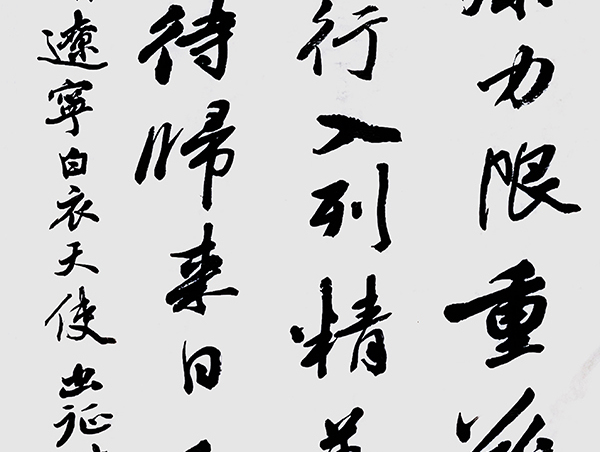 力限重
行入列精
待歸来日
遼寧白衣天使出征